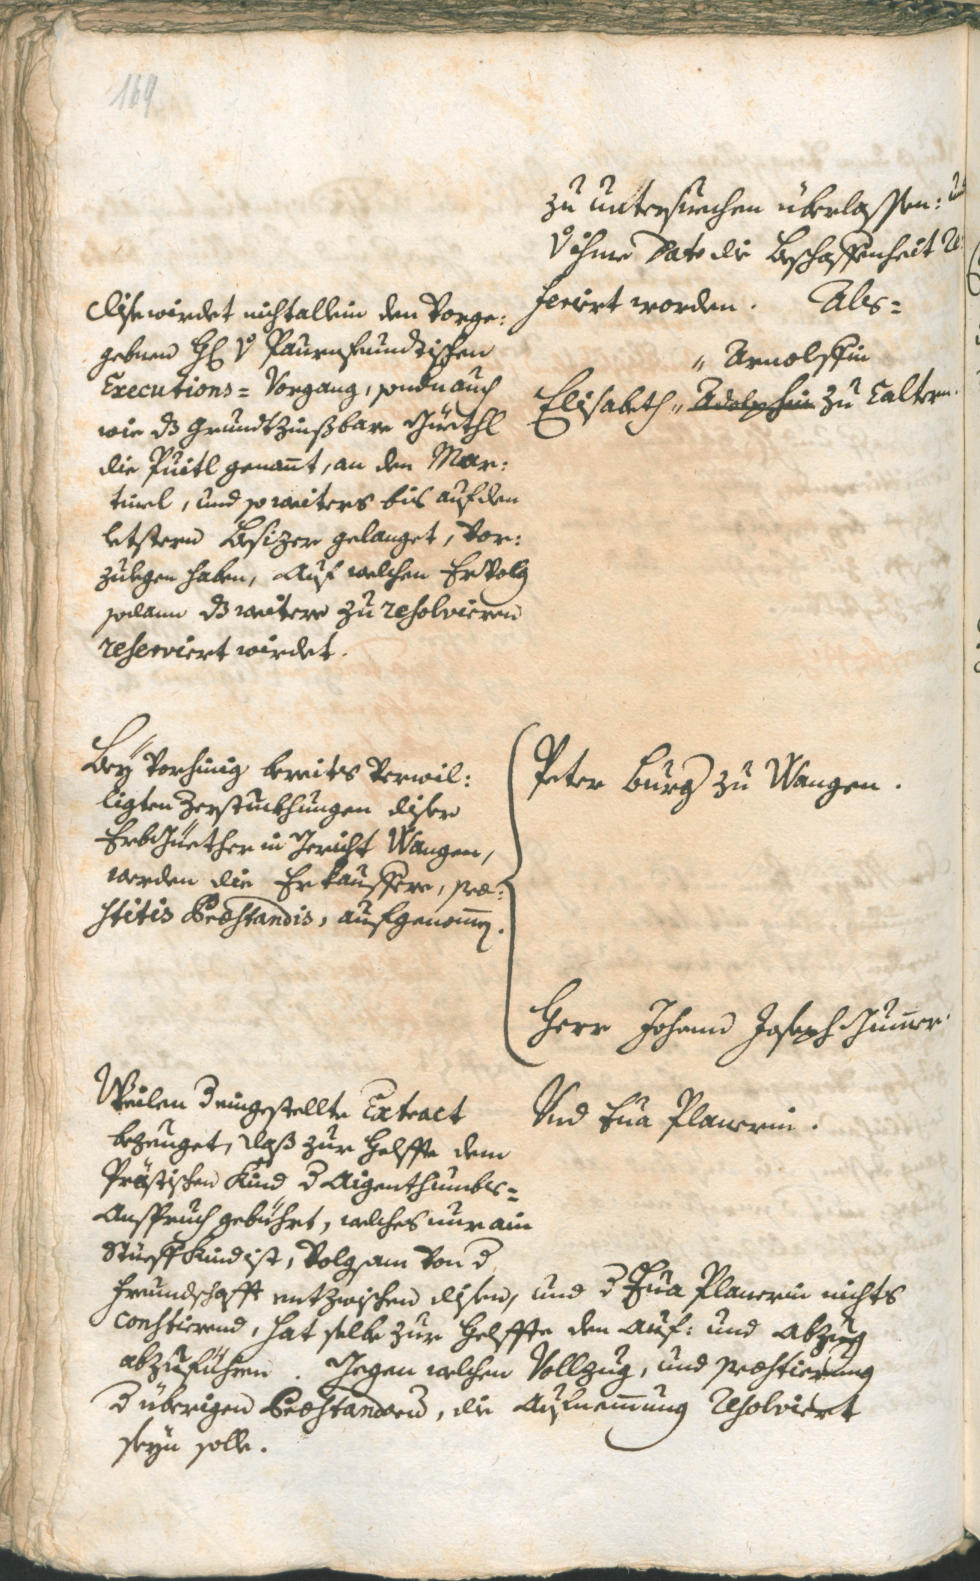 169.
zu untersuechen überlassen: und
V ihme Dato die Beschaffenheit Re:
feriert worden. Als=
„ Arnoltin
Elisabeth „ Adolphin zu Caltern.
Dise wirdet nicht allein den Vorge:
gebnen
Executions= Vorgang, sondern auch
wie dz Grundtzinßbare Güethl
die Puitl genant, an den Mar:
tinel, und so weiters bis auf den
letstern Besizer gelanget, vor:
zulegen haben, Auf welchen Ervolg
sodann dz weitere zu resolvieren
reserviert wirdet.
Bey vorhinig bereits verwil:
ligten Zerstuckhungen diser
Erbgüether in Gericht Wangen,
werden die Erkauffere, præ:
stitis Præstandis, aufgenomen.
Peter Burg zu Wangen.
Herr Johann Joseph Gumer.
Und Eua Planerin.
Weilen d eingestellte Extract
bezeuget, daß zur Helffte dem
Kind d Aigenthumbs=
Anspruch gebührt, welches nur ain
Stieffkind ist, volgsam von d
Freundschafft entzwischen disen, und d Eua Planerin nichts
constierend, hat selbe zur Helffte den Auf: und Abzug
abzuführen. Gegen welchen Vollzug, und præstierung
d überigen Præstanden, die Aufnemung resolviert
seyn solle.